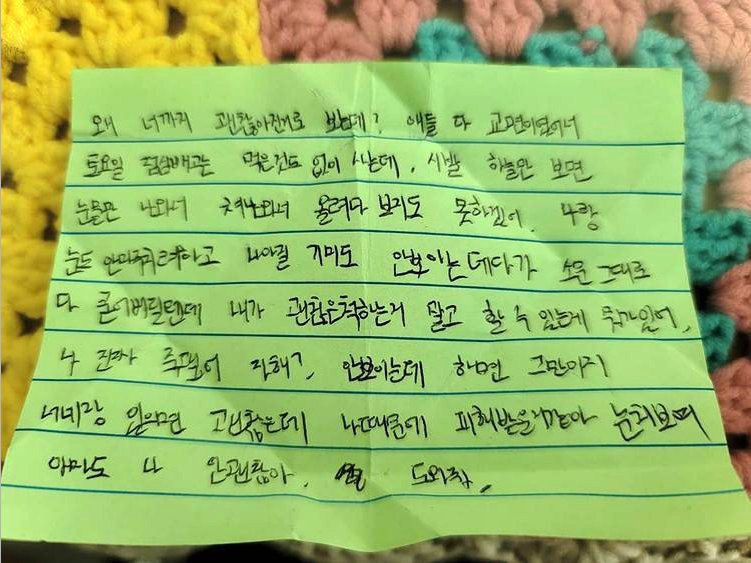 왜 너까지 괜찮아진거로 보는데? 애들 다 교면이였어서
토요일 점심빼고는 먹은건도 없이 사는데. 시발 하늘만 보면
눈물만 나와서 쳐나와서 올려다 보지도 못하겠어. 나랑
눈도 안마주치려하고 나아질 기미도 안보이는데다가 소문 그대로
다 믿어버릴텐데 내가 괜찮은척하는거 말고 할 수 있는게 뭐가있어,
나 진짜 죽겠어 지해?, 안보이는데 하면 그만이지
너네랑 있으면 괜찮은데 나때문에 피해받을거같아 눈치보여
아마도 나 안괜찮아. 도와줘.